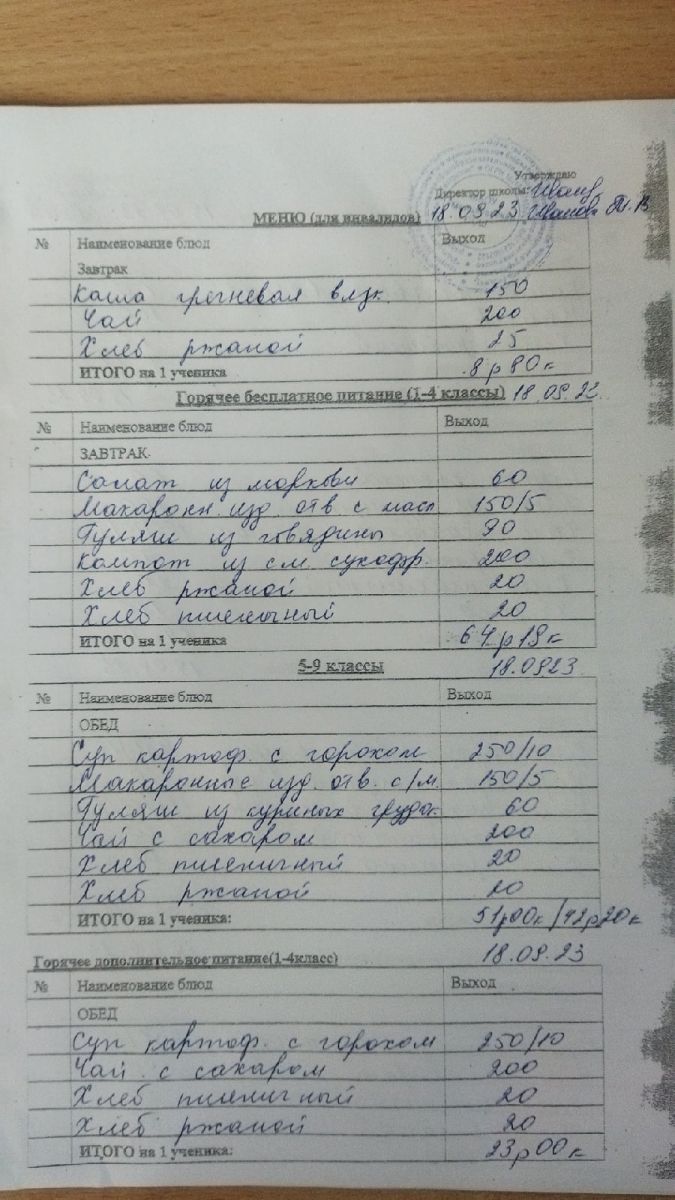 Утверждаю
Директор школы:
МЕНЮ (для инвалидов) 18.09.23 Иванова
№ Наименование блюд Выход
Завтрак
Каша гречневая вязк. 150
Чай 200
Хлеб ржаной 25
ИТОГО на 1 ученика 8р80к
Горячее бесплатное питание (1-4 классы) 18.09.23
№ Наименование блюд Выход
ЗАВТРАК
Салат из моркови 60
Макарон. изд. отв с масл 150/5
Гуляш из говядины 90
Компот из см. сухофр. 200
Хлеб ржаной 20
Хлеб пшеничный 20
ИТОГО на 1 ученика 64р19к
5-9 классы 18.0923
№ Наименование блюд Выход
ОБЕД
Суп картоф. с горохом 250/10
Макаронные изд. отв. с/м. 150/5
Гуляш из куриных грудок 60
Чай с сахаром 200
Хлеб пшеничный 20
Хлеб ржаной 20
ИТОГО на 1 ученика: 51р00к/42р20к
Горячее дополнительное питание(1-4класс) 18.09.23
№ Наименование блюд Выход
ОБЕД
Суп картоф. с горохом 250/10
Чай с сахаром 200
Хлеб пшеничный 20
Хлеб ржаной 20
ИТОГО на 1 ученика: 23р00к